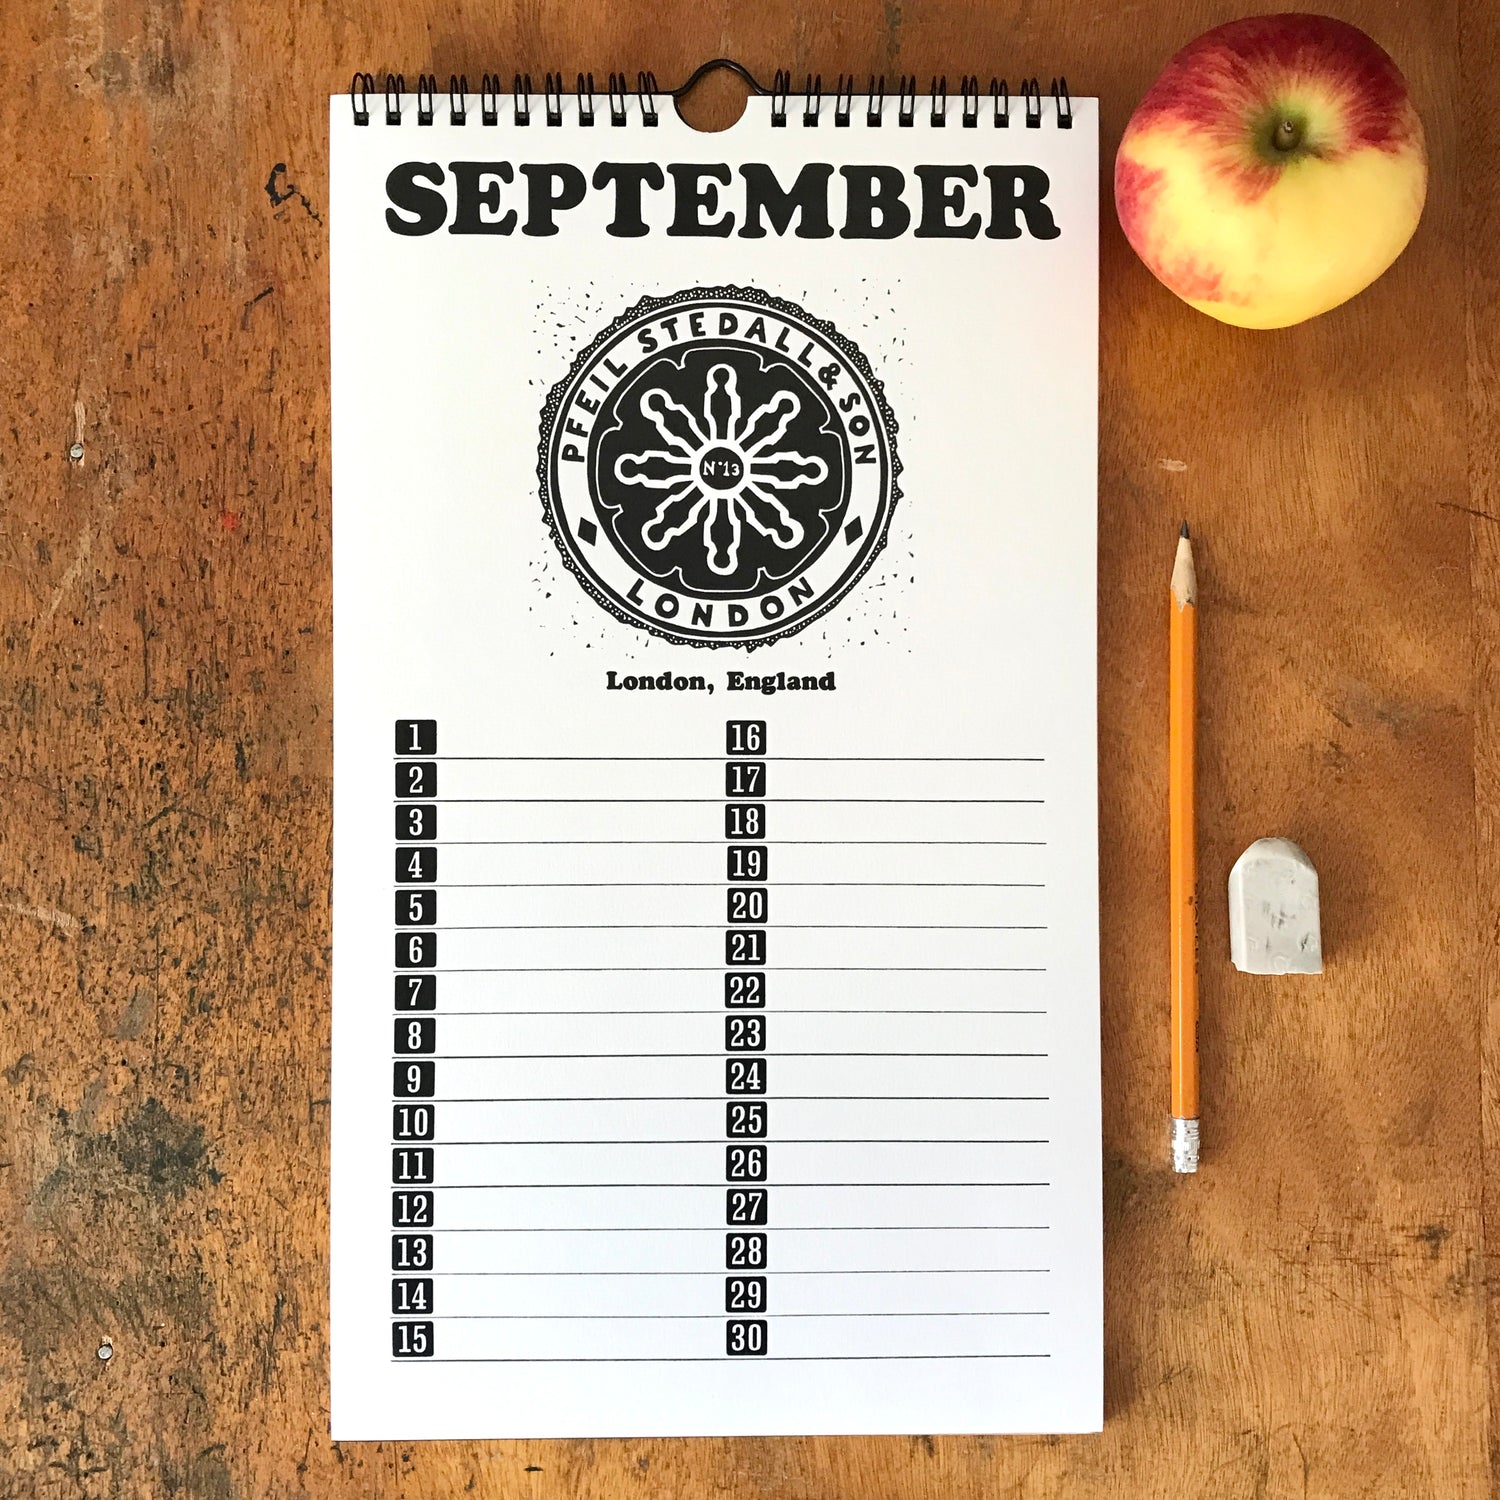 SEPTEMBER
PFEIL STEDALL & SON
N°13
LONDON
London, England
1
2
3
4
5
6
7
8
9
10
11
12
13
14
15
16
17
18
19
20
21
22
23
24
25
26
27
28
29
30